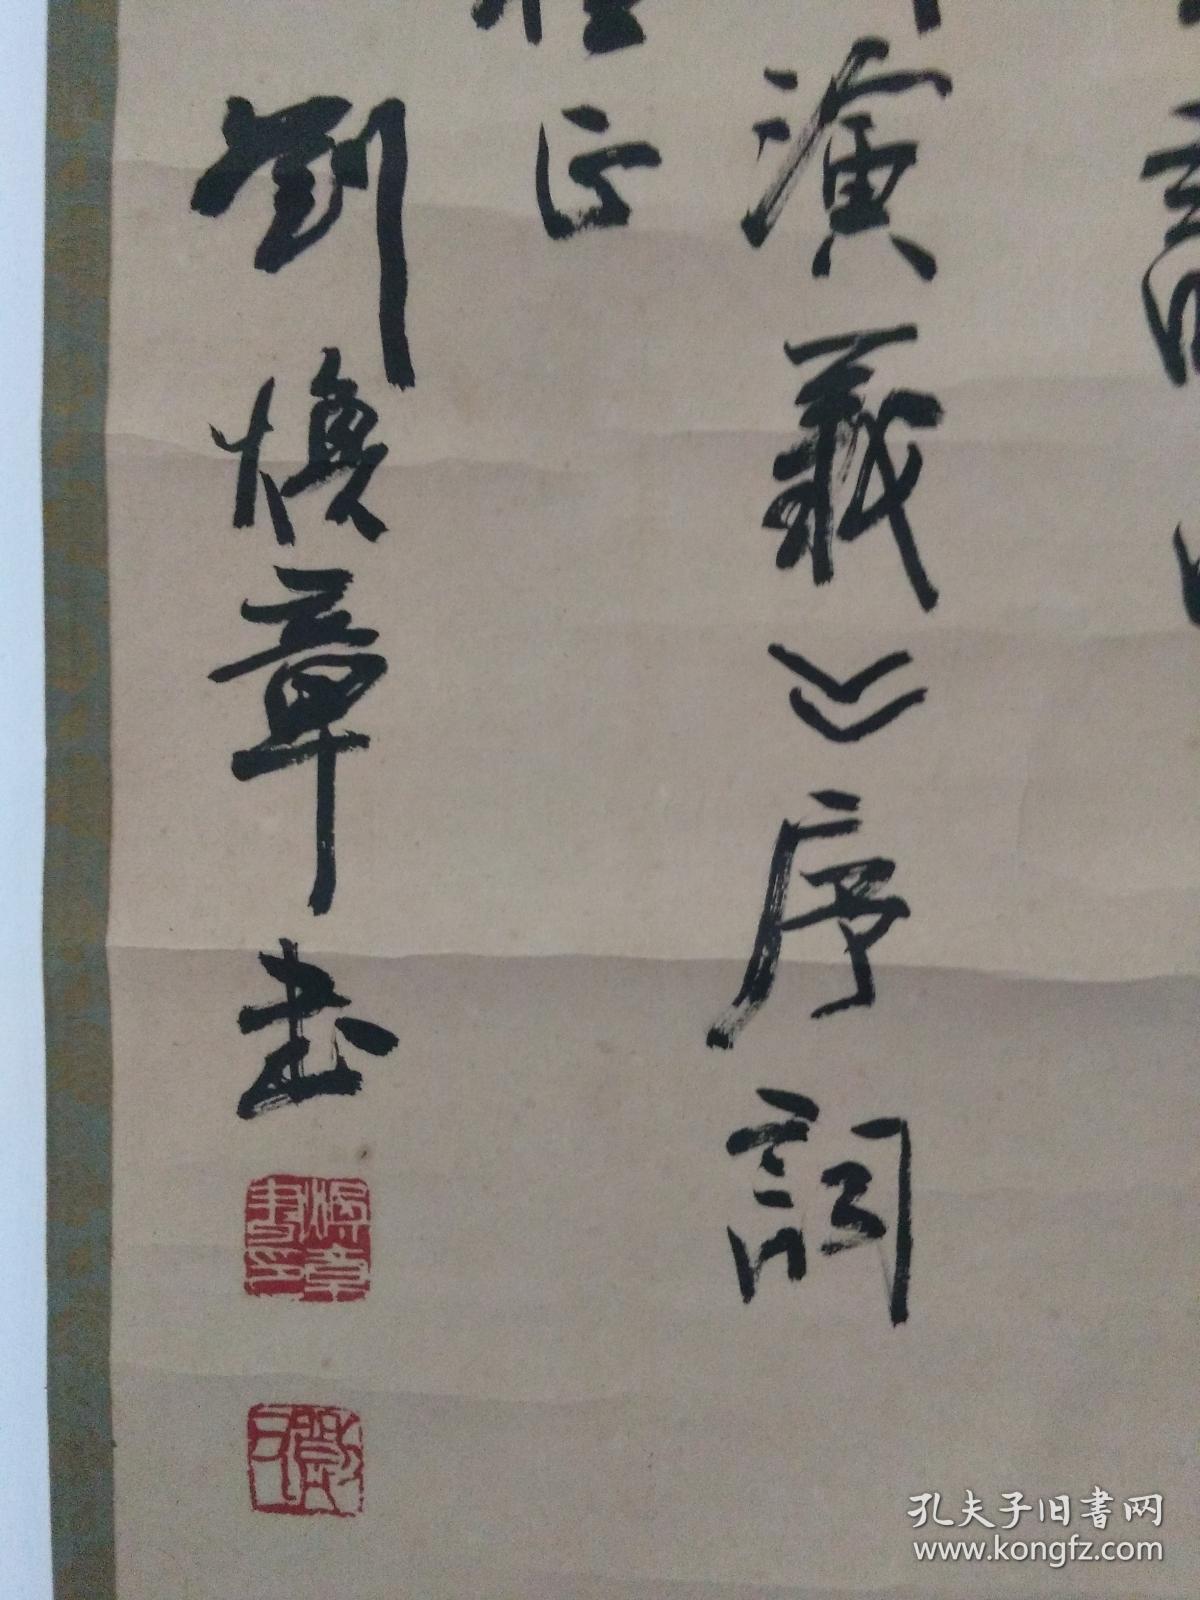 演義》序詞
正
劉煥章书
煥章書印
孔夫子旧書网
www.kongfz.com